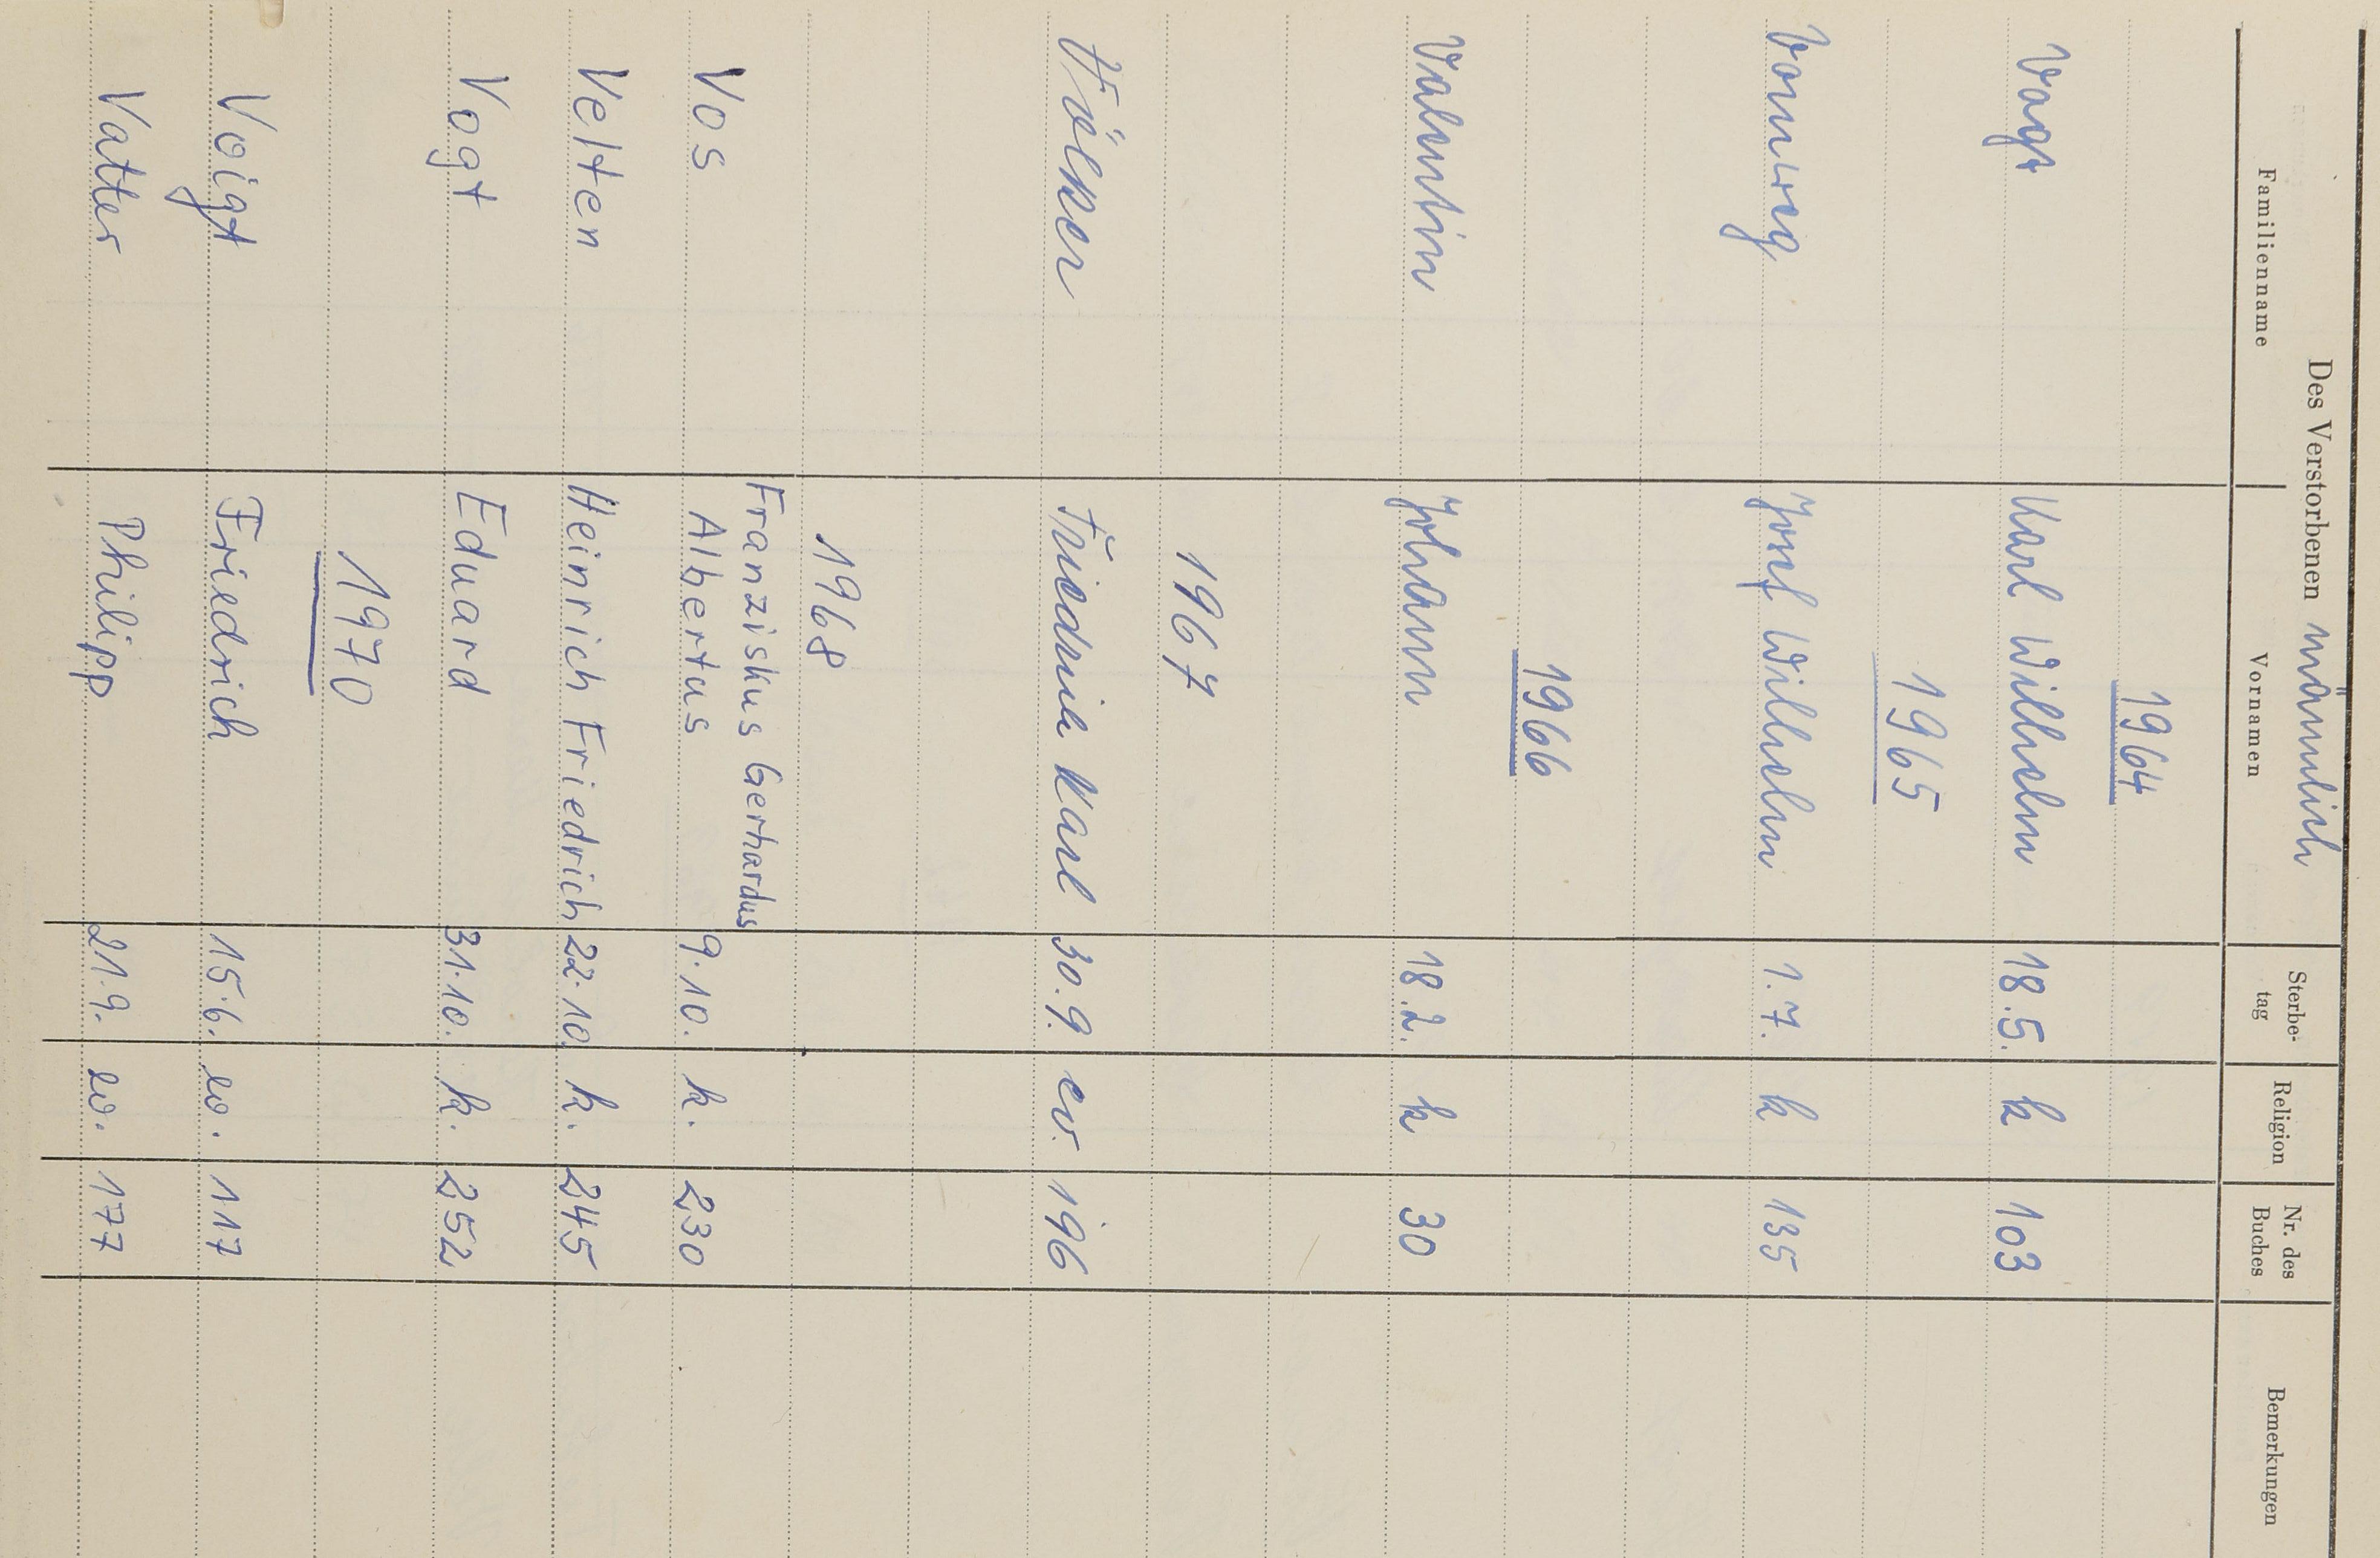 Des Verstorbenen männlich
Familienname Vornamen Sterbe-tag Religion Nr. des Buches Bemerkungen
1964
Vogt Karl Wilhelm 18.5. k 103
1965
Vomweg Josef Wilhelm 1.7. k 135
1966
Valentin Johann 18.2. k 30
1967
Völker Friedrich Karl 30.9. ev. 196
1968
Franziskus Gerhardus
Vos Albertus 9.10. k. 230
Velten Heinrich Friedrich 22.10. k. 245
Vogt Eduard 31.10. k. 252
1970
Voigt Friedrich 15.6. ev. 117
Vatter Philipp 21.9. ev. 177